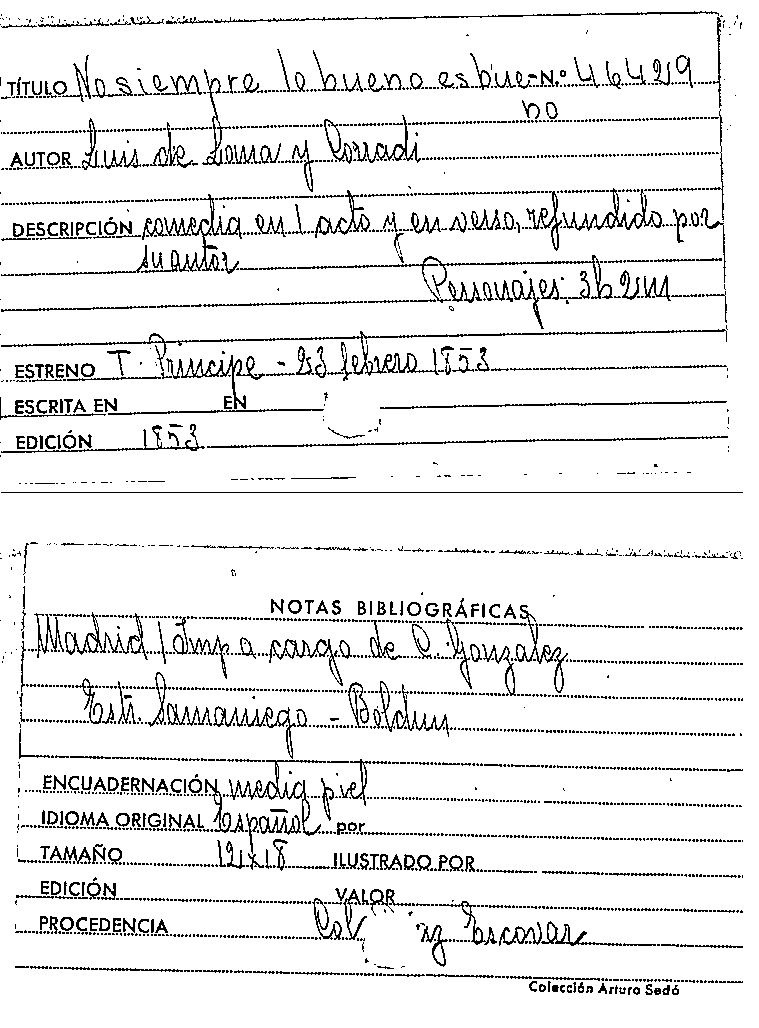 TÍTULO No siempre lo bueno es bue- N.º 46429
no
AUTOR Luis de Loma y Corradi
DESCRIPCIÓN comedia en 1 acto y en verso, refundido por
su autor
Personajes: 3h 2m
ESTRENO T. Príncipe - 23 febrero 1853
ESCRITA EN EN
EDICIÓN 1853
NOTAS BIBLIOGRÁFICAS
Madrid / Imp a cargo de C. Gonzalez
Estr. Samaniego - Boldun
ENCUADERNACIÓN media piel
IDIOMA ORIGINAL Español por
TAMAÑO 12x18 ILUSTRADO POR
EDICIÓN VALOR
PROCEDENCIA Col Escovar
Colección Arturo Sedó